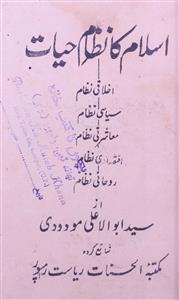 اسلام کا نظام حیات
اخلاقی نظام
سیاسی نظام
معاشرتی نظام
اقتصادی نظام
روحانی نظام
از
سید ابوالاعلی مودودی
شائع کردہ
مکتبۂ الحسنات ریاست رامپور